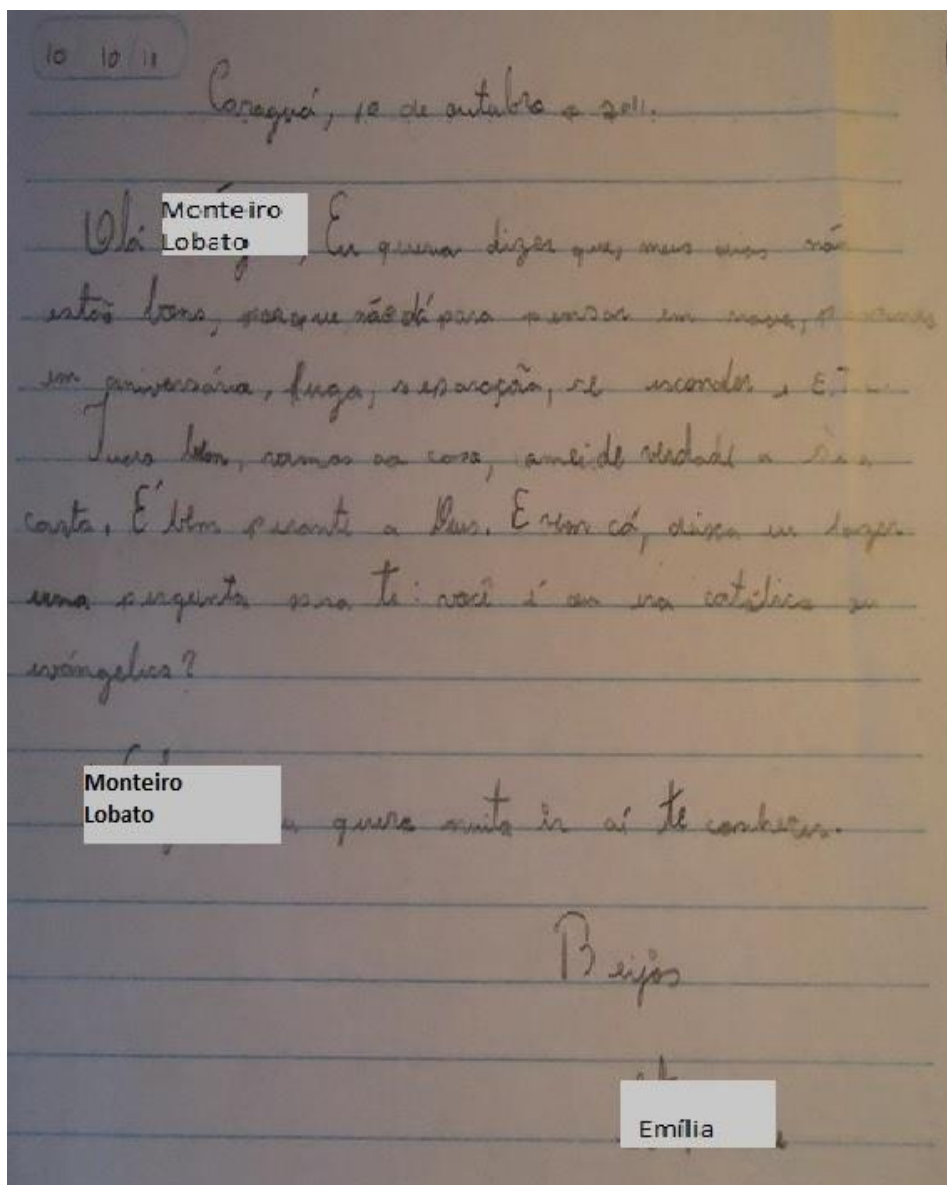 10 10 11
Caraguá, 10 de outubro 2011.
Olá Monteiro Lobato, Eu queria dizer que, meus dias não
estão bons, porque não dá para pensar em nave,
em aniversário, fuga, separação, se esconder, E.T
bem, vamos ao caso, amei de verdade a sua
carta. É bem perante a Deus. E vem cá, deixa eu fazer
uma pergunta para te: você é ou era católica ou
evángelica?
Monteiro Lobato quero muito ir aí te conhecer.
Beijos
Emília